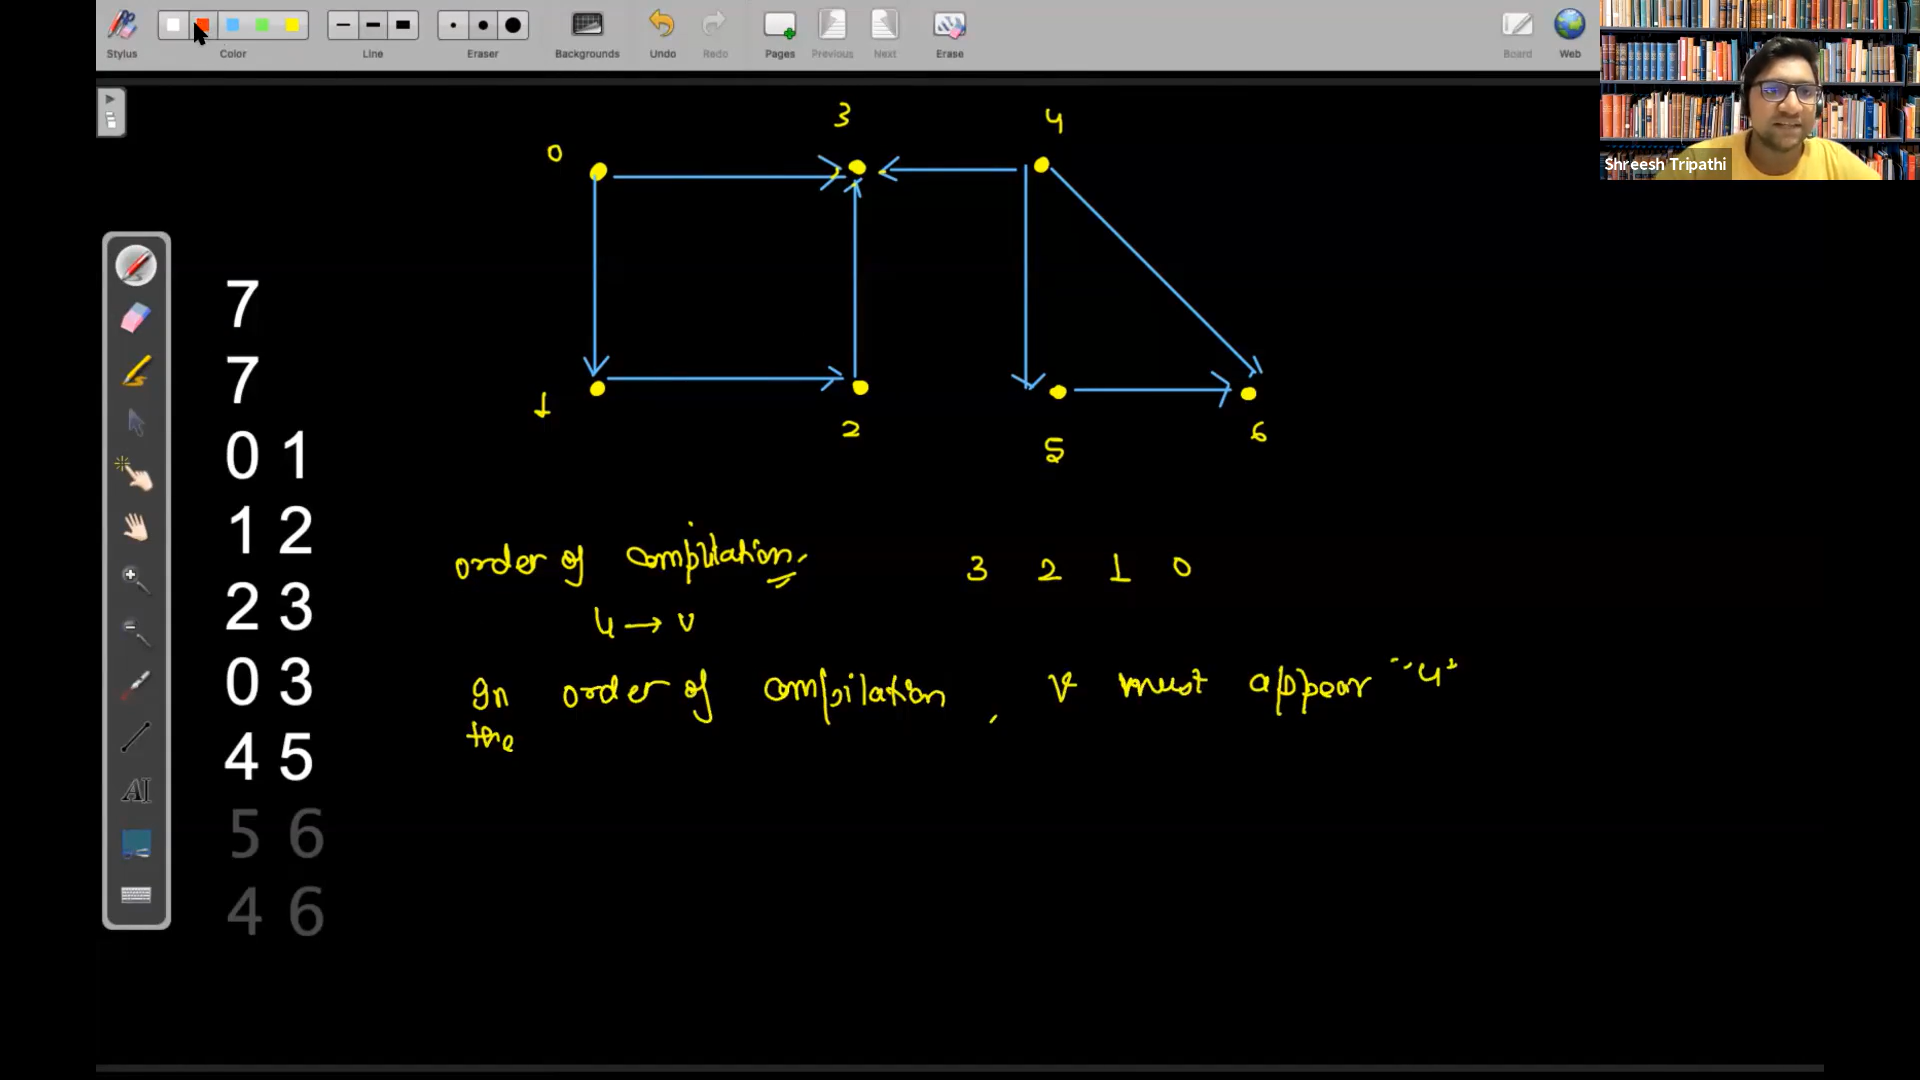 Stylus
Color
Line
Eraser
Backgrounds
Undo
Redo
Pages
Previous
Next
Erase
Board
Web
Shreesh Tripathi
0
3
4
1
2
5
6
7
7
0 1
1 2
2 3
0 3
4 5
5 6
4 6
order of compilation. 3 2 1 0
u → v
In order of compilation, v must appear "u"
the
AI